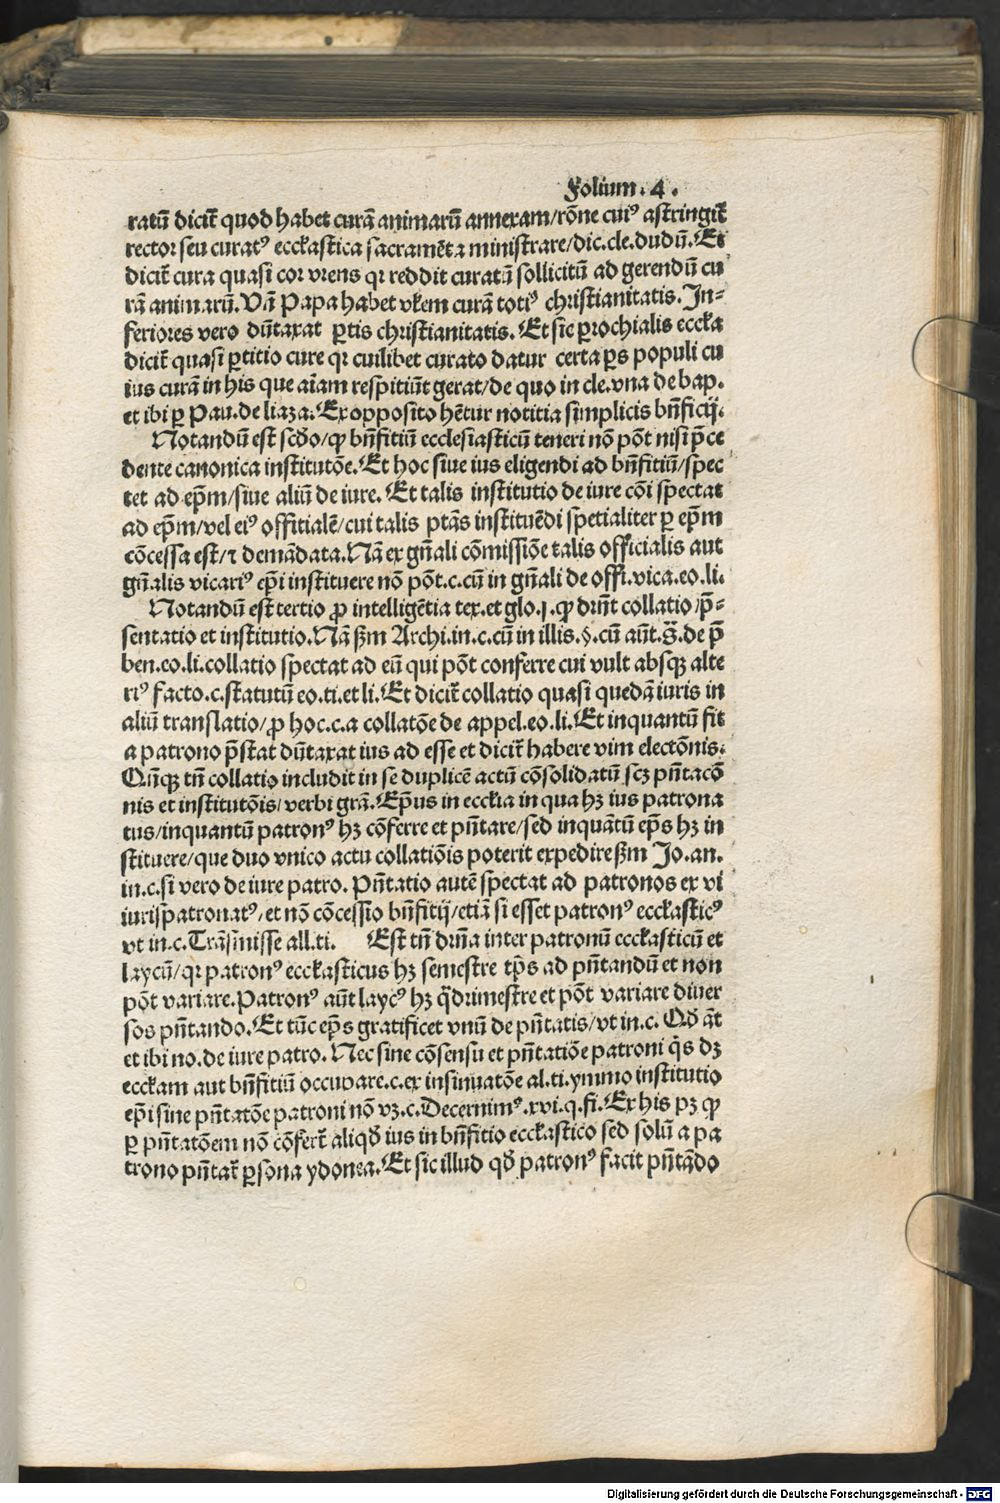 Folium. 4.
ratū dicit̃ quod habet curā animarū annexam/rōne cuiꝰ astringit̃
rector seu curatꝰ ecckastica sacramēta ministrare/dic.cle.dudū. Et
dicit̃ cura quasi cor vrens qꝛ reddit curatū sollicitū ad gerendū cu
rā animarū. Vn̄ Papa habet vłem curā totiꝰ christianitatis. In-
feriores vero dūtaxat ꝑtis christianitatis. Et sic ꝑrochialis eccła
dicit̃ quasi ꝑtitio cure qꝛ cuilibet curato datur certa ꝑs populi cu
ius curā in his que aīam respitiūt gerat/de quo in cle.vna de bap.
et ibi ꝑ Pau.de liaza. Ex opposito hētur notitia simplicis bn̄ficij.
Notandū est scd̄o/ꝙ bn̄fitiū ecclesiasticū teneri nō pōt nisi p̄ce
dente canonica institutōe. Et hoc siue ius eligendi ad bn̄fitiū/spec
tet ad ep̄m/siue aliū de iure. Et talis institutio de iure cōi spectat
ad ep̄m/vel eiꝰ offitialē/cui talis ptās instituēdi spetialiter ꝑ ep̄m
cōcessa est/⁊ demādata. Nā ex gn̄ali cōmissiōe talis officialis aut
gn̄alis vicariꝰ ep̄i instituere nō pōt.c.cū in gn̄ali de offi.vica.eo.li.
Notandū est tertio ꝓ intelligētia tex.et glo.j.ꝙ dn̄t collatio/p̄-
sentatio et institutio. Nā ẜm Archi.in.c.cū in illis.§.cū aūt.s̄.de p̄
ben.eo.li.collatio spectat ad eū qui pōt conferre cui vult absqꝫ alte
riꝰ facto.c.statutū eo.ti.et li. Et dicit̃ collatio quasi quedā iuris in
aliū translatio/ꝓ hoc.c.a collatōe de appel.eo.li. Et inquantū fit
a patrono p̄stat dūtaxat ius ad esse et dicit̃ habere vim electōnis.
Qn̄qꝫ tn̄ collatio includit in se duplicē actū cōsolidatū scꝫ pn̄tacō
nis et institutōis/verbi grā. Ep̄us in ecckia in qua hꝫ ius patrona
tus/inquantū patronꝰ hꝫ cōferre et pn̄tare/sed inquātū ep̄s hꝫ in
stituere/que duo vnico actu collatiōis poterit expedire ẜm Jo.an.
in.c.si vero de iure patro. Pn̄tatio autē spectat ad patronos ex vi
iurisp̄atronatꝰ/et nō cōcessio bn̄fitij/etiā si esset patronꝰ ecckasticꝰ
vt in.c.Trāsmisse all.ti. Est tn̄ drn̄a inter patronū ecckasticū et
laycū/qꝛ patronꝰ ecckasticus hꝫ semestre tp̄s ad pn̄tandū et non
pōt variare. Patronꝰ aūt laycꝰ hꝫ q̄drimestre et pōt variare diuer
sos pn̄tando. Et tūc ep̄s gratificet vnū de pn̄tatis/vt in.c. Qd̄ āt
et ibi no.de iure patro. Nec sine cōsensu et pn̄tatiōe patroni q̄s dꝫ
ecckam aut bn̄fitiū occupare.c.ex insinuatōe al.ti.ymmo institutio
ep̄i sine pn̄tatōe patroni nō vꝫ.c.Decernimꝰ.xvi.q.fi. Ex his pꝫ ꝙ
ꝑ pn̄tatōem nō cōfert̃ aliqd̄ ius in bn̄fitio ecckastico sed solū a pa
trono pn̄tat̃ ꝑsona ydonea. Et sic illud qd̄ patronꝰ facit pn̄tādo
Digitalisierung gefördert durch die Deutsche Forschungsgemeinschaft - DFG